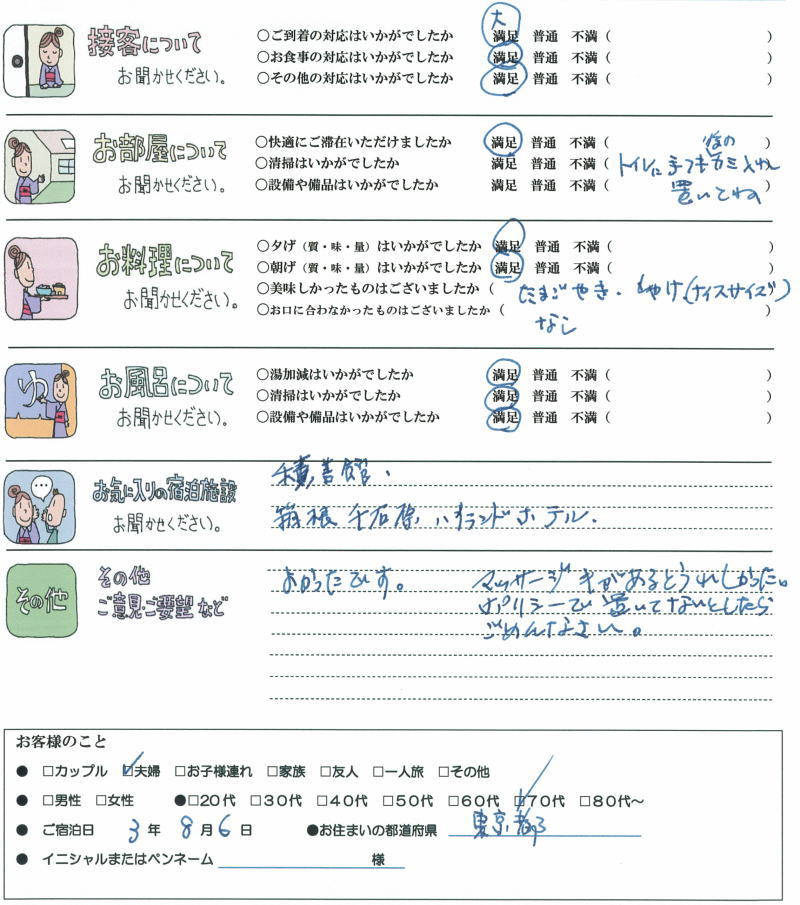 接客について
お聞かせください。
○ご到着の対応はいかがでしたか 大満足 普通 不満 ( )
○お食事の対応はいかがでしたか 満足 普通 不満 ( )
○その他の対応はいかがでしたか 満足 普通 不満 ( )
お部屋について
お聞かせください。
○快適にご滞在いただけましたか 満足 普通 不満 ( )
○清掃はいかがでしたか 満足 普通 不満 ( トイレに手フキカミ入れ
○設備や備品はいかがでしたか 満足 普通 不満 ( 置いてね )
お料理について
お聞かせください。
○夕げ（質・味・量）はいかがでしたか 満足 普通 不満 ( )
○朝げ（質・味・量）はいかがでしたか 満足 普通 不満 ( )
○美味しかったものはございましたか ( たまごやき. (ナイスサイズ) )
○お口に合わなかったものはございましたか ( なし )
ゆ
お風呂について
お聞かせください。
○湯加減はいかがでしたか 満足 普通 不満 ( )
○清掃はいかがでしたか 満足 普通 不満 ( )
○設備や備品はいかがでしたか 満足 普通 不満 ( )
お気に入りの宿泊施設
お聞かせください。
積善館.
箱根千石原 ハイランドホテル.
その他
その他
ご意見・ご要望など
よかったです。
マッサージキがあるとうれしかった。
ポリシーで置いてないとしたら
ごめんなさい。
お客様のこと
● □カップル ☑夫婦 □お子様連れ □家族 □友人 □一人旅 □その他
● □男性 □女性 ●□20代 □30代 □40代 □50代 □60代 ☑70代 □80代〜
● ご宿泊日 3年 8月 6日 ●お住まいの都道府県 東京都
● イニシャルまたはペンネーム 様